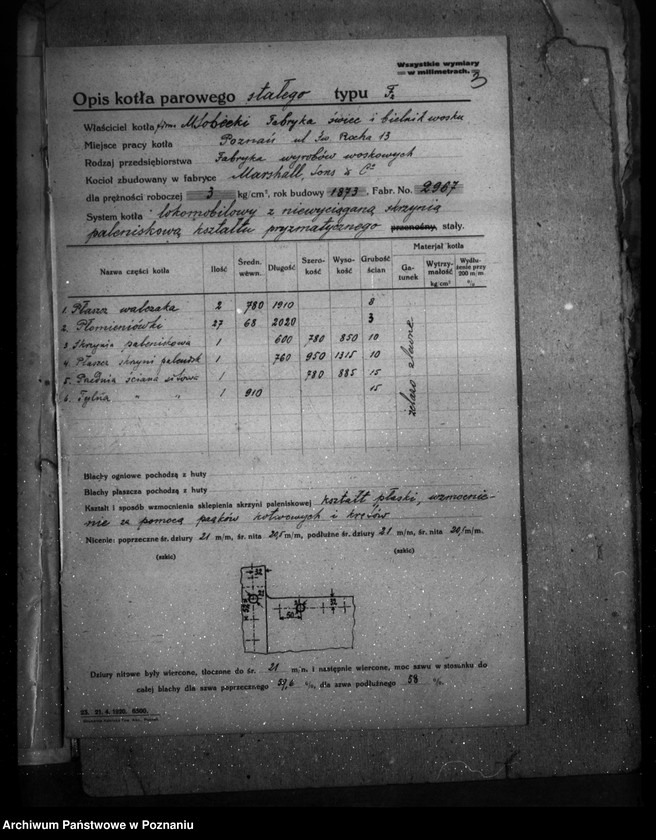 Wszystkie wymiary
w milimetrach.
3
Opis kotła parowego stałego typu
Właściciel kotła firma Miłobecki Fabryka świec i bielnik wosku
Miejsce pracy kotła Poznań ul Św. Rocha 13
Rodzaj przedsiębiorstwa Fabryka wyrobów woskowych
Kocioł zbudowany w fabryce Marshall, Sons &
dla prężności roboczej 3 kg/cm², rok budowy 1873, Fabr. No. 2967
System kotła lokomobilowy z niewyciąganą skrzynią
paleniskową kształtu pryzmatycznego przenośny, stały.
Nazwa części kotła Ilość Średn. wewn. Długość Szerokość Wysokość Grubość ścian Materjał kotła
Gatunek Wytrzymałość kg/cm² Wydłużenie przy 200 m/m. %
1. Płaszcz walczaka 2 780 1910 8
2. Płomieniówki 27 68 2020 3
3 Skrzynia paleniskowa 1 600 780 850 10
4. Płaszcz skrzyni palenisk 1 760 950 1315 10
5. Przednia ściana sitowa 1 780 885 15
6. Tylna " " 1 910 15
żelazo zlewne
Blachy ogniowe pochodzą z huty
Blachy płaszcza pochodzą z huty
Kształt i sposób wzmocnienia sklepienia skrzyni paleniskowej kształt płaski, wzmocnie-
nie za pomocą kotwowych i
Nicenie: poprzeczne śr. dziury 21 m/m, śr. nita 20,5 m/m, podłużne śr. dziury 21 m/m, śr. nita 20,5 m/m.
(szkic) (szkic)
32
52
22
50
Dziury nitowe były wiercone, tłoczone do śr. 21 m/m. i następnie wiercone, moc szwu w stosunku do
całej blachy dla szwu poprzecznego 59,6 %, dla szwu podłużnego 58 %.
23. 21. 4. 1920. 6500.
Archiwum Państwowe w Poznaniu